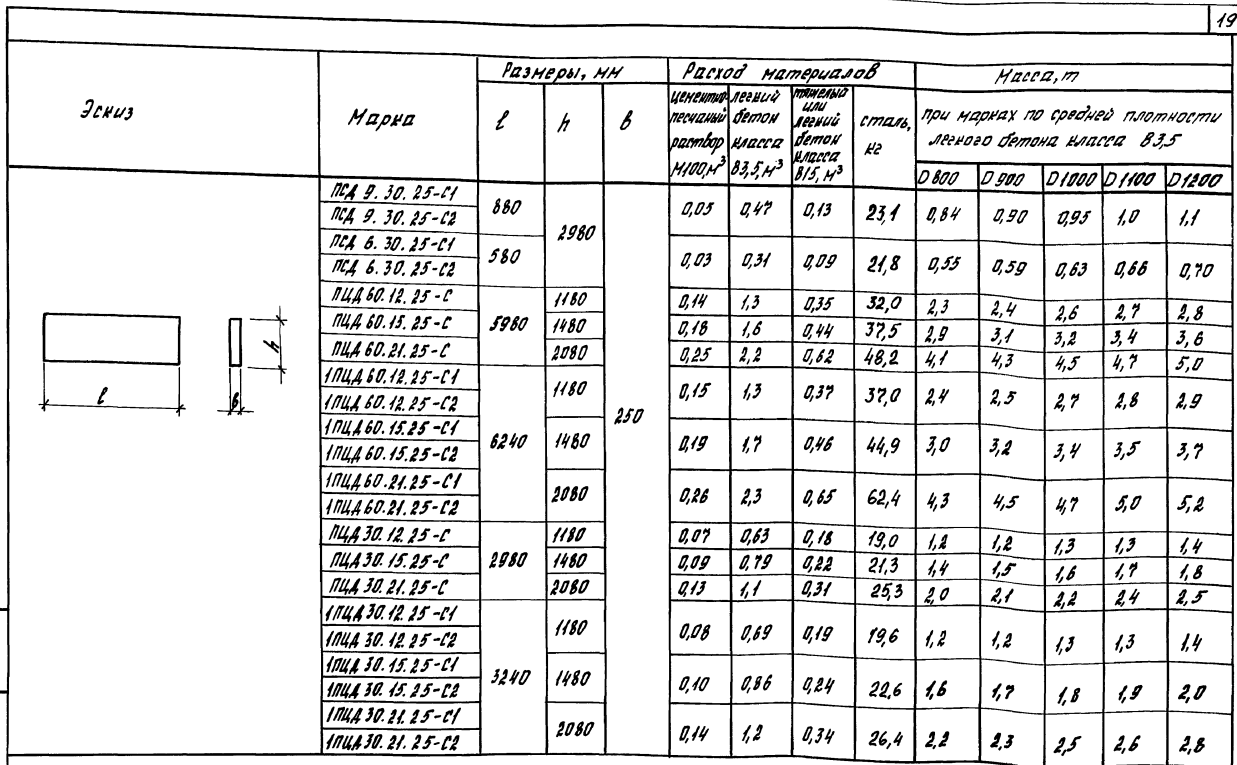 19
Эскиз
Марка
Размеры, мм
Расход материалов
Масса, т
l
h
b
цементно-песчаный раствор М100, м³
легкий бетон класса В3,5, м³
тяжелый или легкий бетон класса В15, м³
сталь, кг
при марках по средней плотности
легкого бетона класса В3,5
D800 D900 D1000 D1100 D1200
ПСД 9.30.25-С1 880 2980 250 0,05 0,47 0,13 23,1 0,84 0,90 0,95 1,0 1,1
ПСД 9.30.25-С2
ПСД 6.30.25-С1 580 0,03 0,31 0,09 21,8 0,55 0,59 0,63 0,66 0,70
ПСД 6.30.25-С2
ПЦД 60.12.25-С 5980 1180 0,14 1,3 0,35 32,0 2,3 2,4 2,6 2,7 2,8
ПЦД 60.15.25-С 1480 0,18 1,6 0,44 37,5 2,9 3,1 3,2 3,4 3,6
ПЦД 60.21.25-С 2080 0,25 2,2 0,62 48,2 4,1 4,3 4,5 4,7 5,0
1ПЦД 60.12.25-С1 6240 1180 0,15 1,3 0,37 37,0 2,4 2,5 2,7 2,8 2,9
1ПЦД 60.12.25-С2
1ПЦД 60.15.25-С1 1480 0,19 1,7 0,46 44,9 3,0 3,2 3,4 3,5 3,7
1ПЦД 60.15.25-С2
1ПЦД 60.21.25-С1 2080 0,26 2,3 0,65 62,4 4,3 4,5 4,7 5,0 5,2
1ПЦД 60.21.25-С2
ПЦД 30.12.25-С 2980 1180 0,07 0,63 0,18 19,0 1,2 1,2 1,3 1,3 1,4
ПЦД 30.15.25-С 1480 0,09 0,79 0,22 21,3 1,4 1,5 1,6 1,7 1,8
ПЦД 30.21.25-С 2080 0,13 1,1 0,31 25,3 2,0 2,1 2,2 2,4 2,5
1ПЦД 30.12.25-С1 3240 1180 0,08 0,69 0,19 19,6 1,2 1,2 1,3 1,3 1,4
1ПЦД 30.12.25-С2
1ПЦД 30.15.25-С1 1480 0,10 0,86 0,24 22,6 1,6 1,7 1,8 1,9 2,0
1ПЦД 30.15.25-С2
1ПЦД 30.21.25-С1 2080 0,14 1,2 0,34 26,4 2,2 2,3 2,5 2,6 2,8
1ПЦД 30.21.25-С2
l
b
h